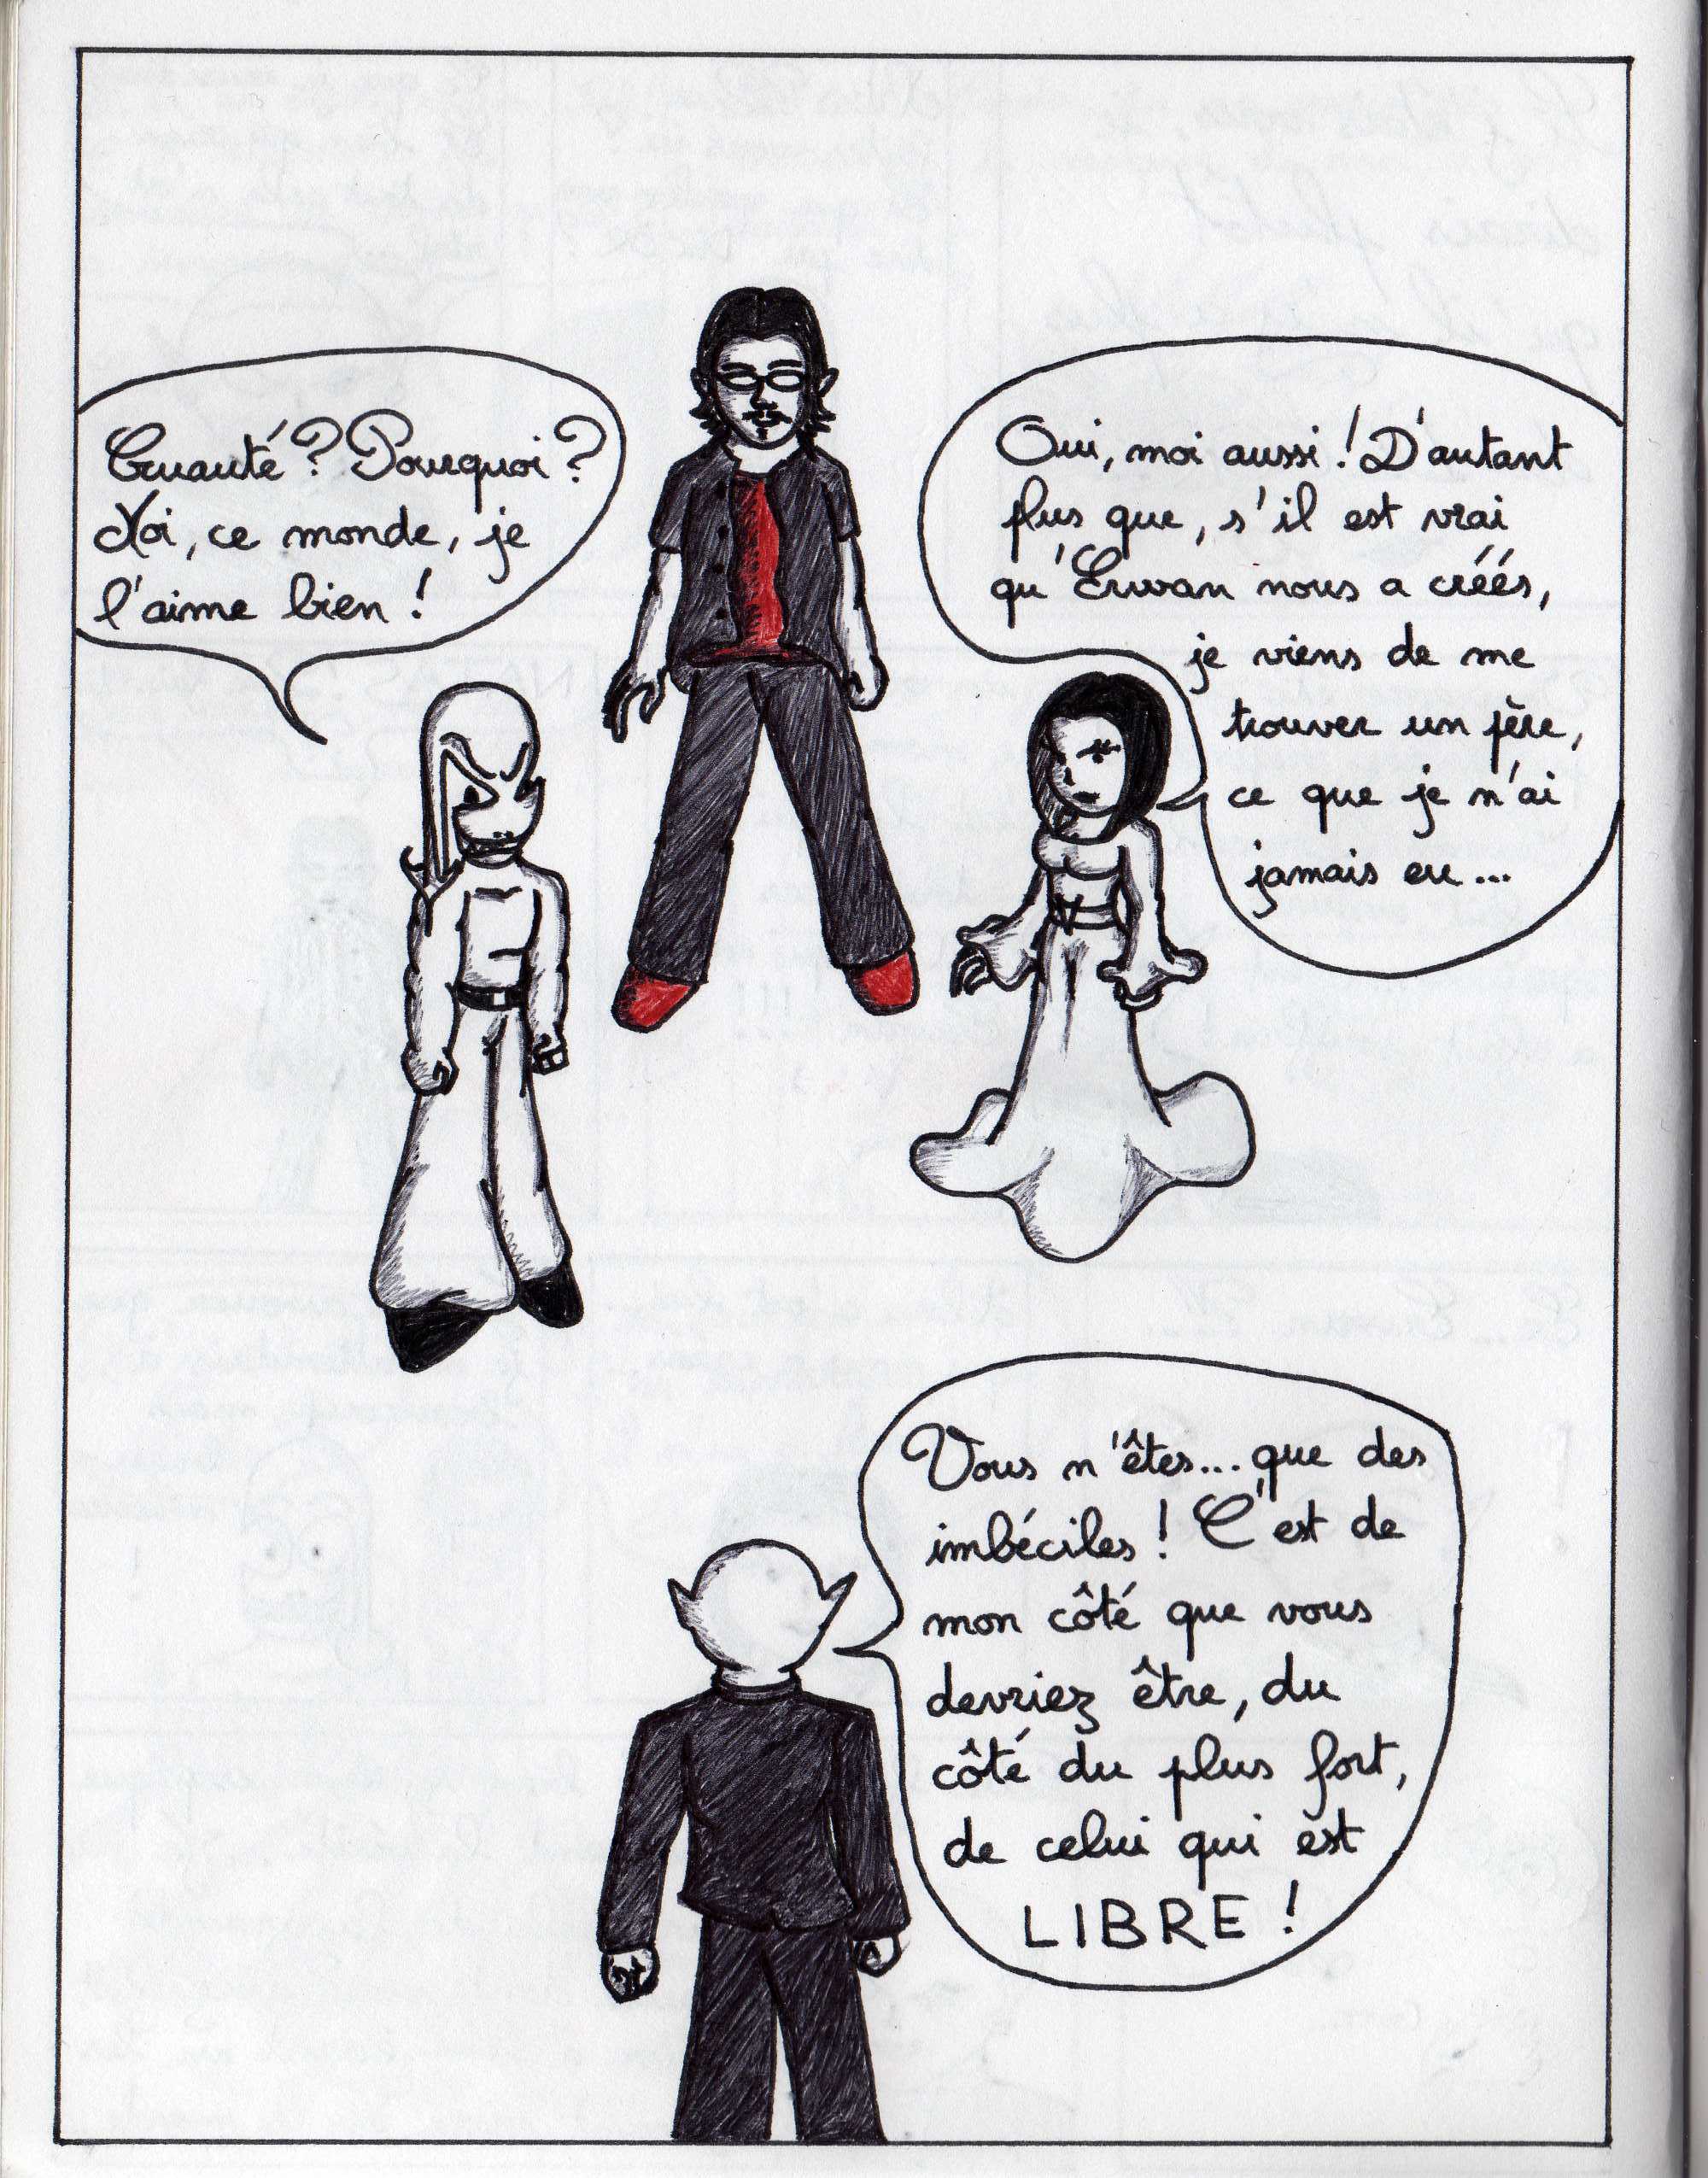 Cruauté ? Pourquoi ?
Moi, ce monde, je
l'aime bien !
Oui, moi aussi ! D'autant
plus que, s'il est vrai
qu'Erwan nous a créés,
je viens de me
trouver un père,
ce que je n'ai
jamais eu...
Vous n'êtes... que des
imbéciles ! C'est de
mon côté que vous
devriez être, du
côté du plus fort,
de celui qui est
LIBRE !